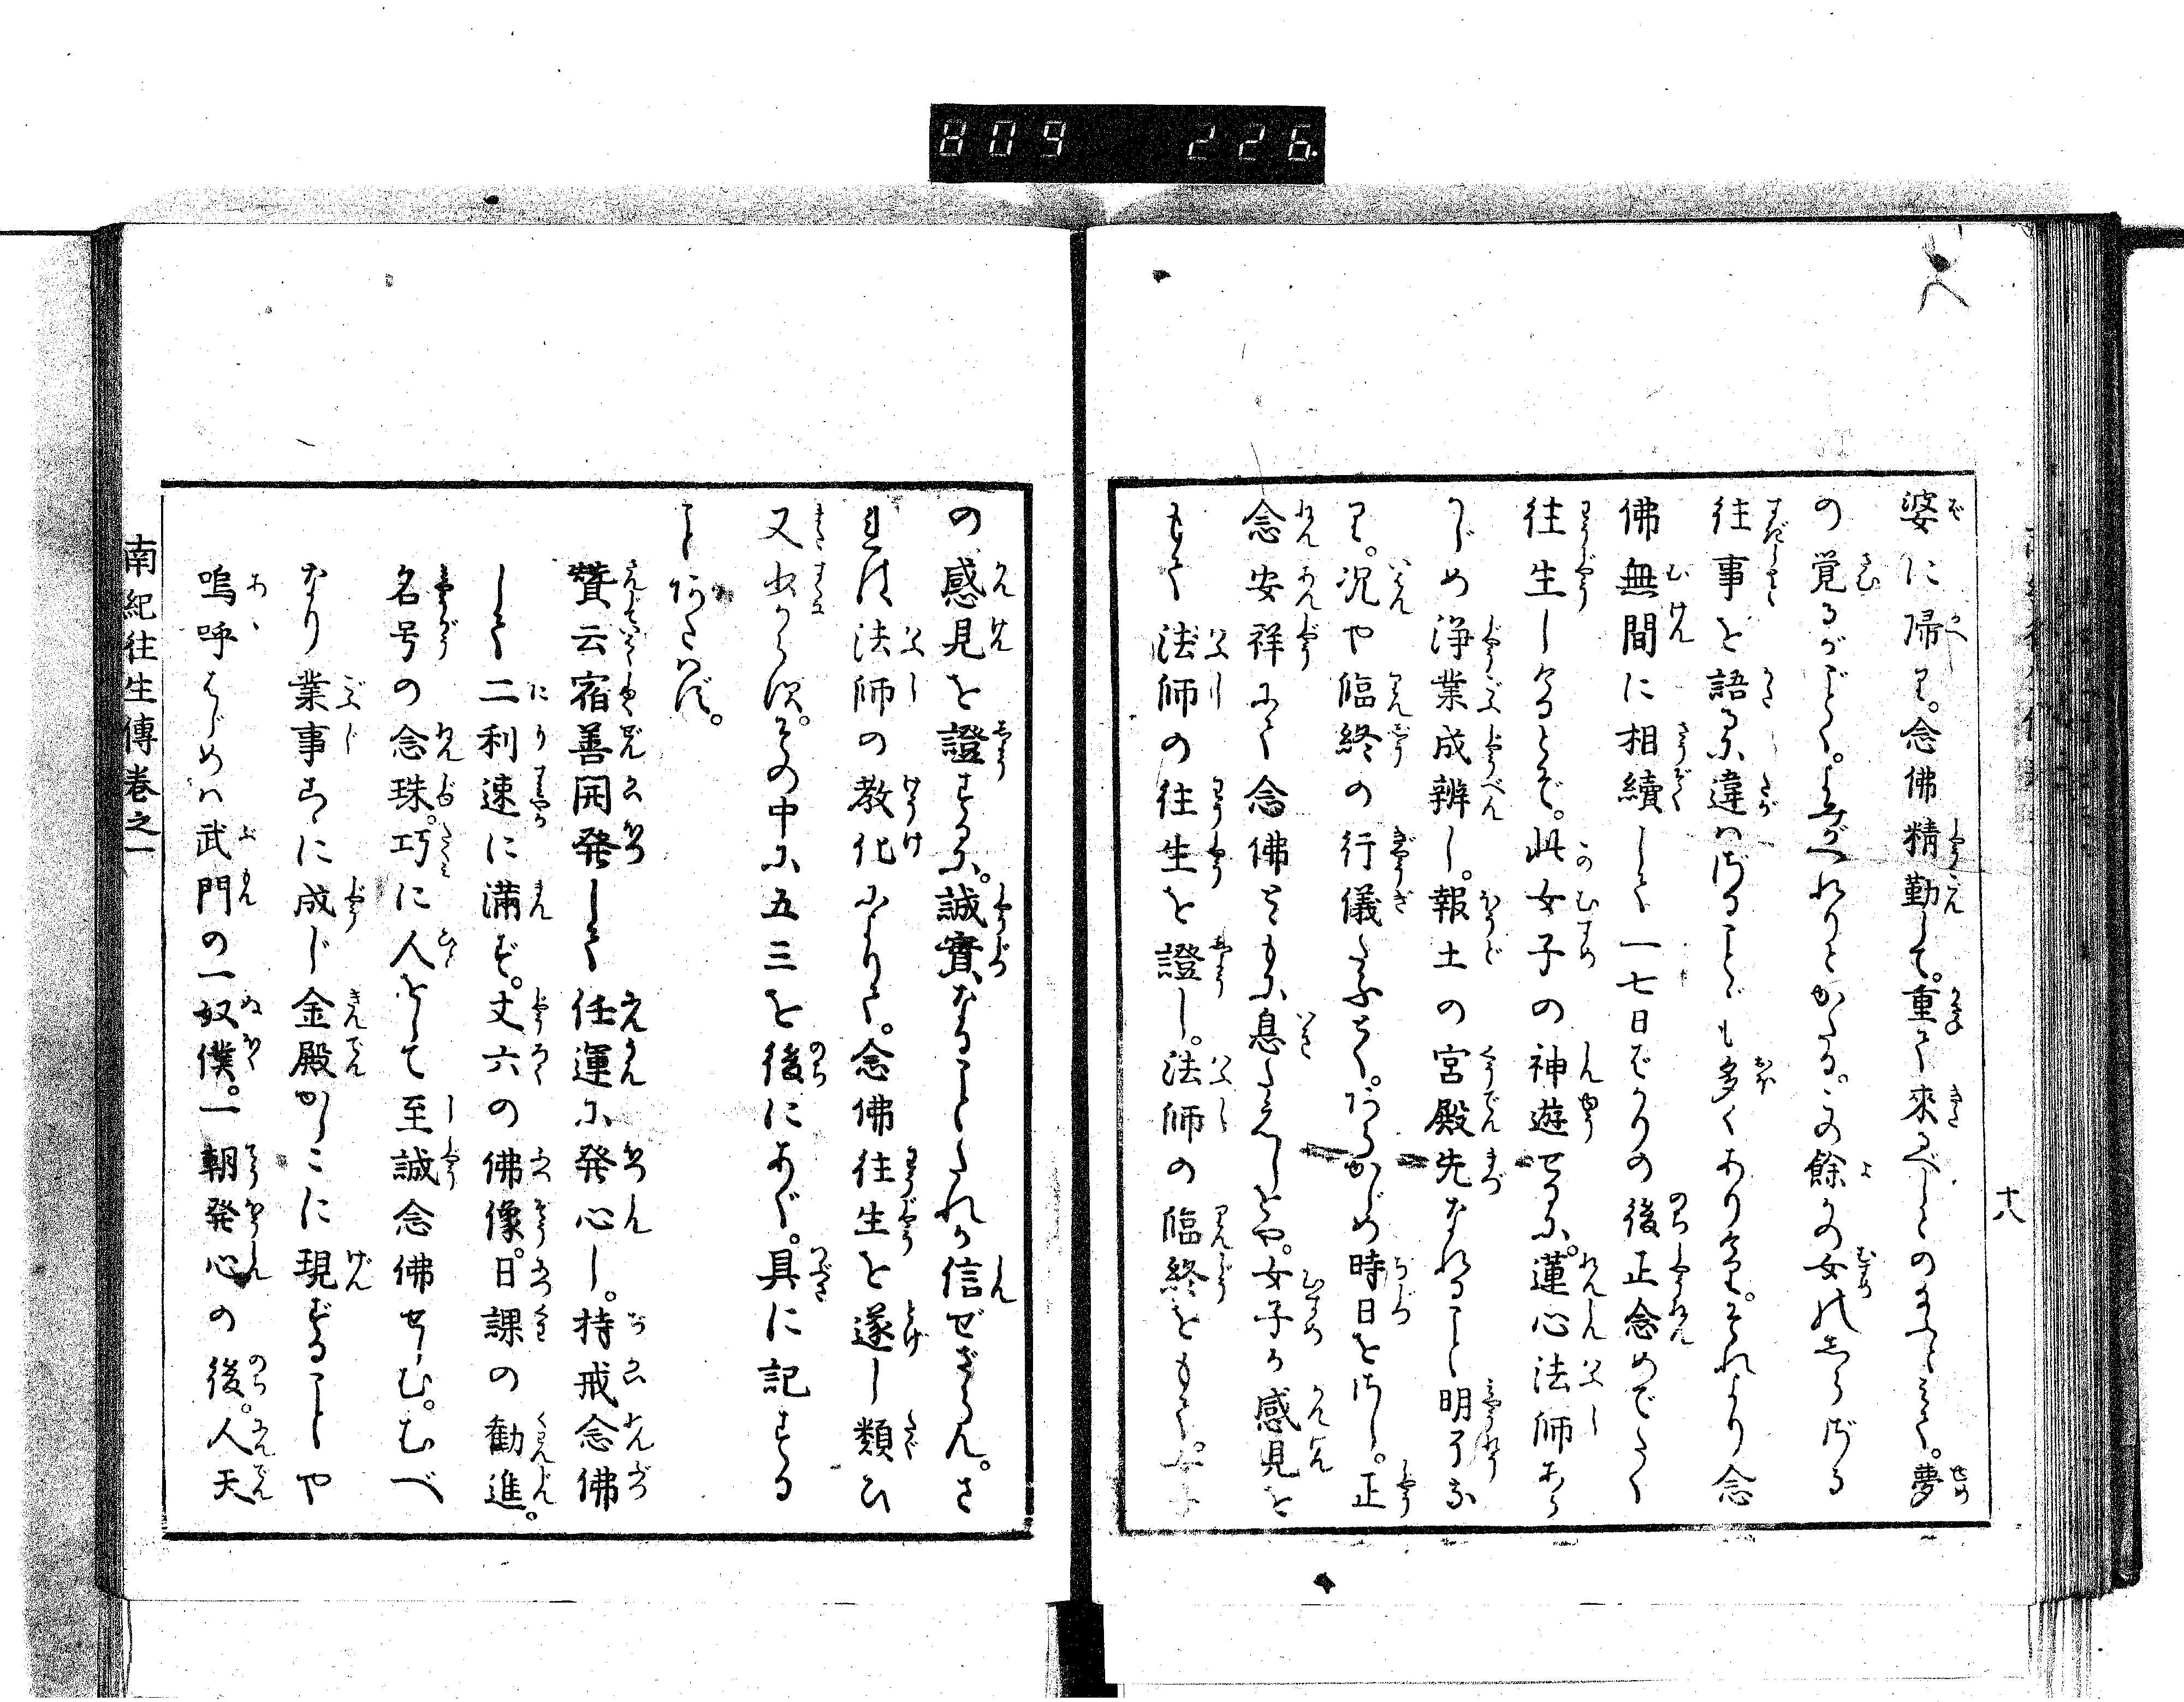 809 226
十八
婆に帰り。念佛精勤して。重て來るべしとのたまふとミて。夢
の覚るがごとく。よみがへれりとかたる。その餘かの女のしらざる
往事を語るに違はざることども多くありけり。それより念
佛無間に相續して一七日ばかりの後正念めでたく
往生しけるとぞ。此女子の神遊せるに。蓮心法師あら
かじめ浄業成辨し。報土の宮殿先なれること明了な
り。况や臨終の行儀たふとく。あらかじめ時日をさし。正
念安祥にて念佛とともに息たえしをや。女子の感見を
もて法師の往生を證し。法師の臨終をもて。女子
の感見を證するに。誠實なることたれか信ぜざらん。さ
れば法師の教化によりて。念佛往生を遂し類ひ
又少からず。その中に五三を後にあぐ。具に記する
にあたはず。
贊云宿善開発して任運に発心し。持戒念佛
して二利速に満ず。丈六の佛像。日課の勸進。
名号の念珠。巧に人をして至誠念佛せしむ。むべ
なり業事こゝに成じ金殿かしこに現ずることや
嗚呼はじめハ武門の一奴僕。一朝発心の後。人天
南紀往生傳巻之一